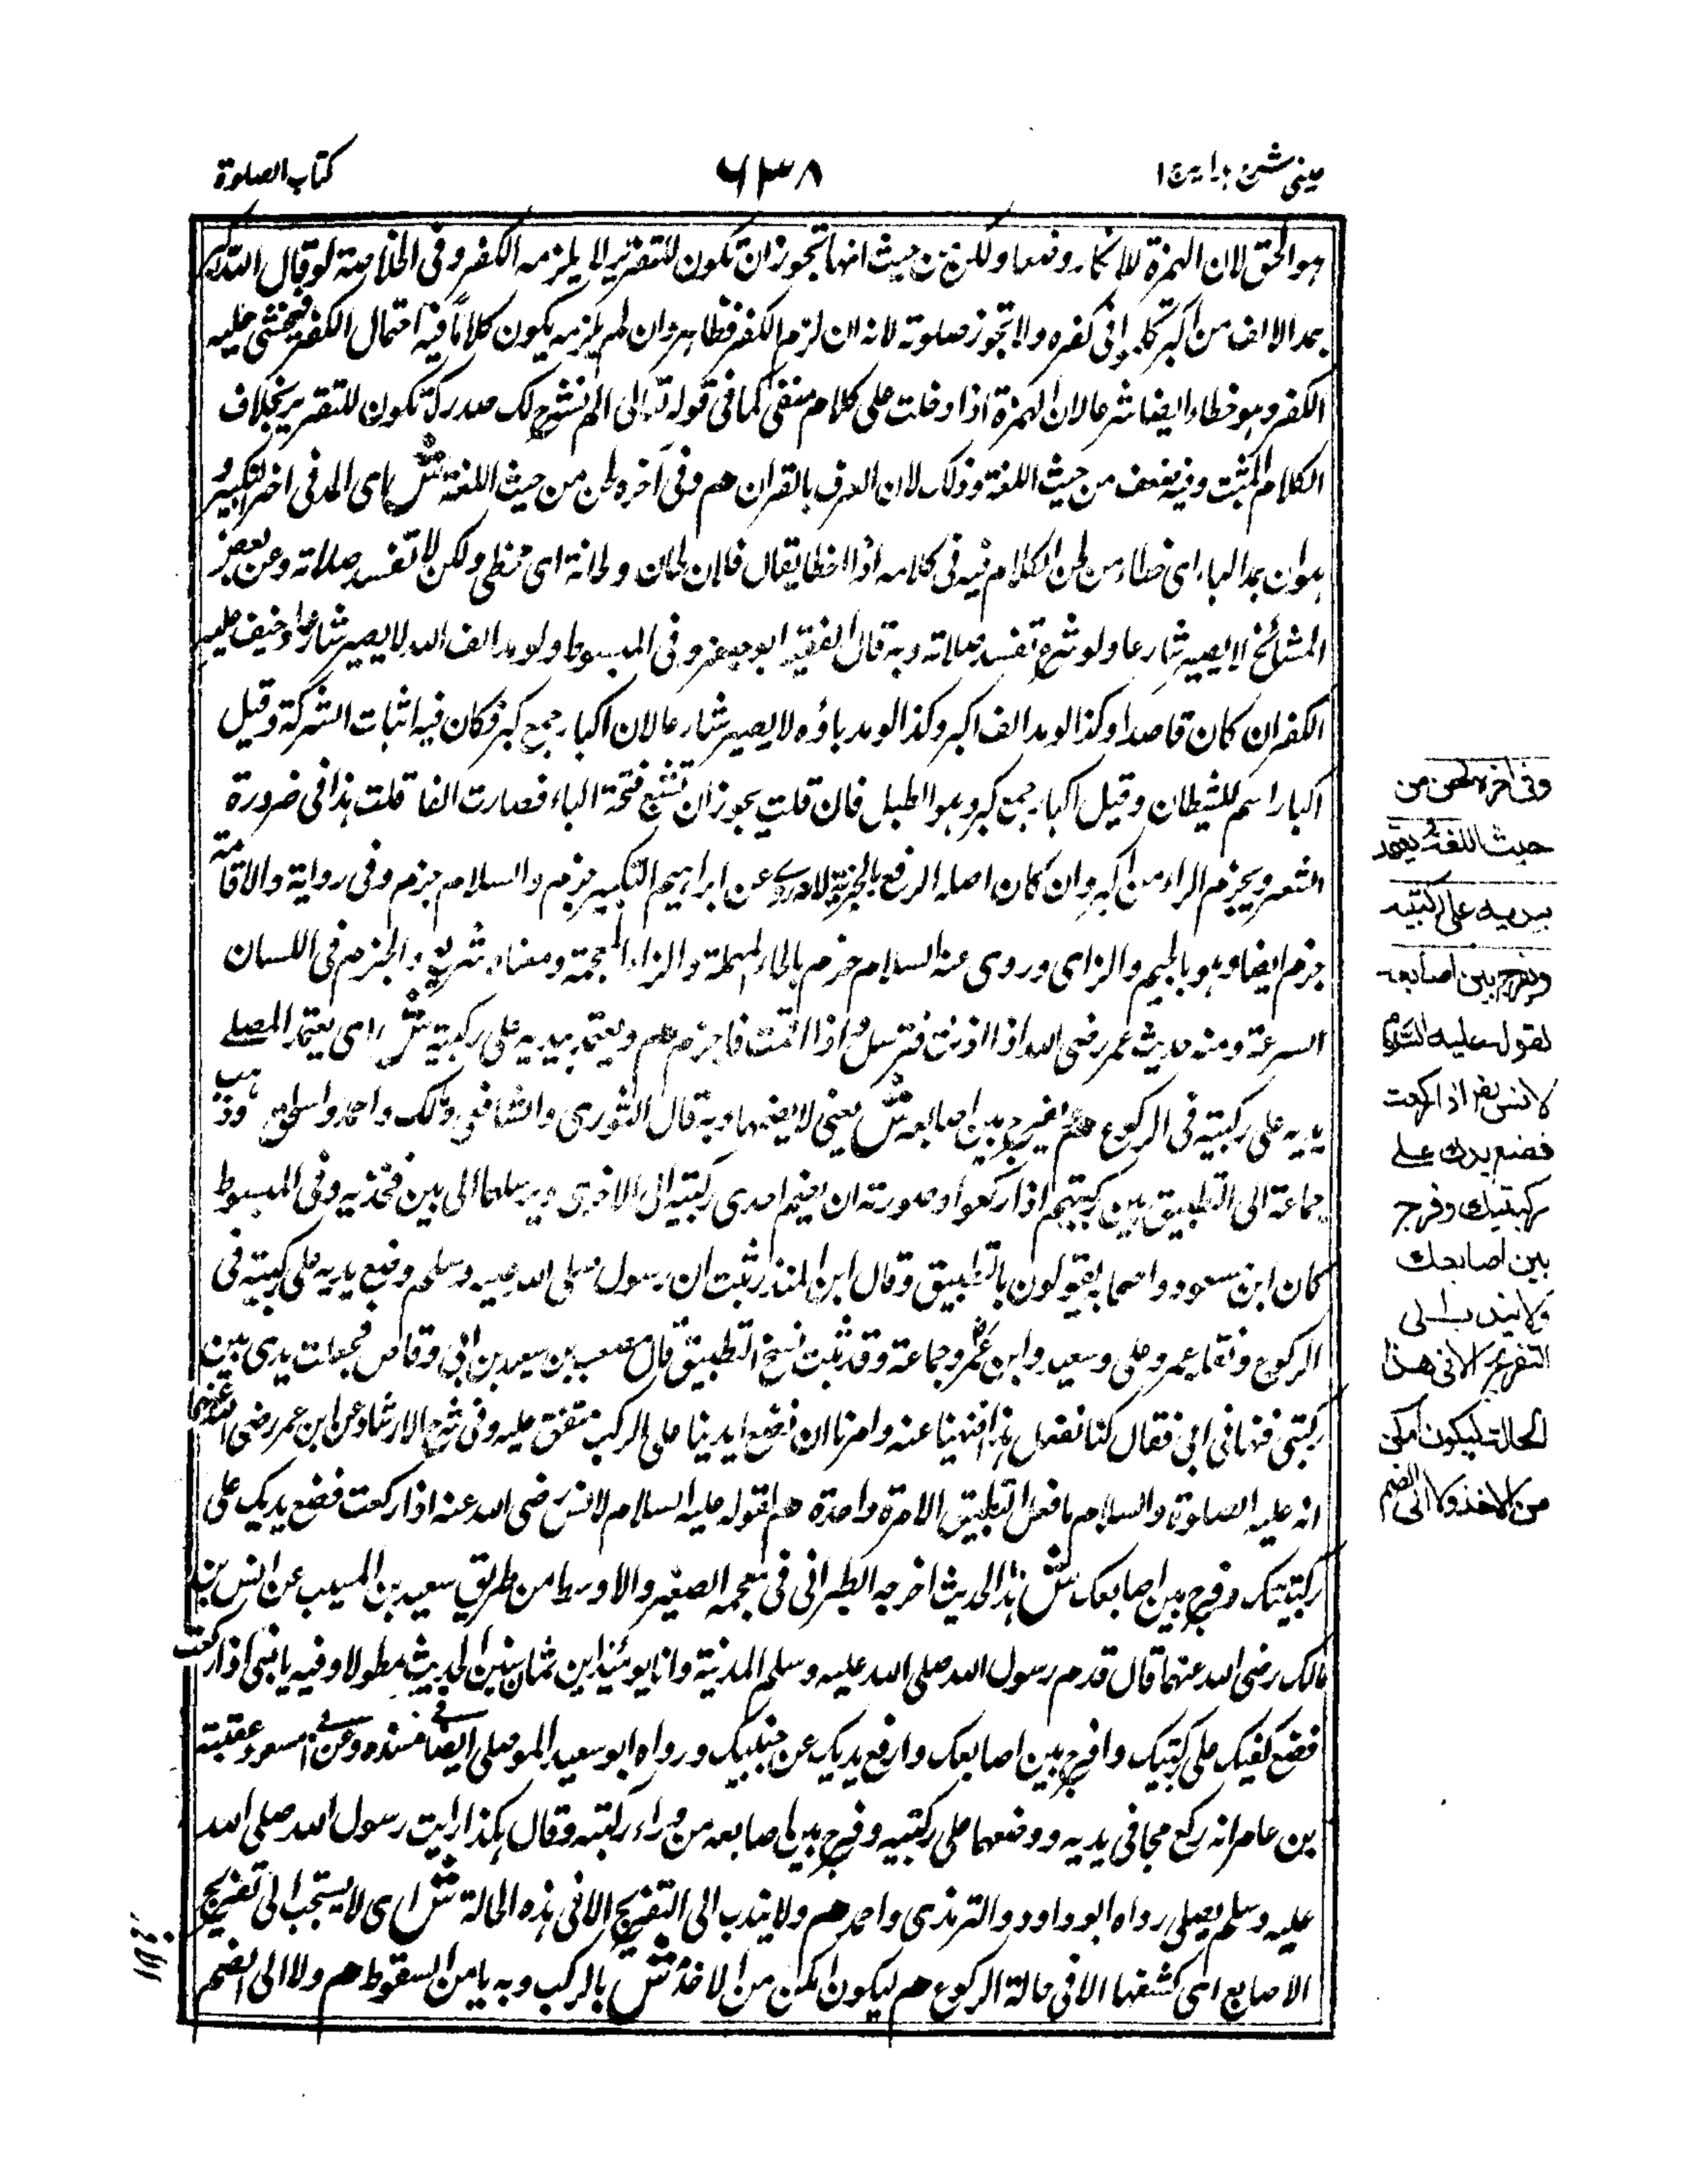 عینی شرح هدایة ج ١
٦٣٨
کتاب الصلوة
هو الحق لان الهمزة للانکار وضعا ولکن من حیث انها تجوز ان تکون للتقریر لا یلزمه الکفر وفی الخلاصة لو قال الله اکبر
بمد الالف من اکبر تکلموا فی کفره ولا تجوز صلوته لانه ان لزم الکفر فظاهر وان لم یلزمه یکون کلاماً فیه احتمال الکفر فیخشی علیه
الکفر وهو خطاء ایضا شرعا لان الهمزة اذا دخلت علی کلام منفی کما فی قوله تعالی الم نشرح لک صدرک تکون للتقریر بخلاف
الکلام المثبت وفیه ضعف من حیث اللغة وذلک لان العرف بالقران هم وفی آخره لحن من حیث اللغة ش ای المد فی اخر التکبیر و
هو ان یمد الباء ای خطاء من لحن الکلام فیه فی کلامه اذا اخطا یقال فلان لحان ولحانة ای مخطی ولکن لا تفسد صلاته وعن بعض
المشائخ لا یصیر شارعا ولو شرع تفسد صلاته وبه قال الفقیه ابو جعفر وفی المبسوط ولو مد الف الله لا یصیر شارعا وخیف علیه
الکفر ان کان قاصدا وکذا لو مد الف اکبر وکذا لو مد باؤه لا یصیر شارعا لان اکبار جمع کبر فکان فیه اثبات الشرکة وقیل
اکبار اسم للشیطان وقیل اکبار جمع کبر وهو الطبل فان قلت یجوز ان تشبع فتحة الباء فصارت الفا قلت هذا فی ضرورة
الشعر ویجزم الراء من اکبر وان کان اصله الرفع بالخبریة لما روی عن ابراهیم التکبیر جزم والسلام جزم وفی روایة والاقامة
جزم ایضا وهو بالجیم والزای وروی عنه السلام حزم بالحاء المهملة والزاء المعجمة ومعناه سریع والحزم فی اللسان
السرعة ومنه حدیث عمر رضی الله اذا اذنت فترسل واذا اقمت فاحزم هم ویعتمد بیدیه علی رکبتیه ش ای یعتمد المصلے
یدیه علی رکبتیه فی الرکوع هم ویفرج بین اصابعه ش یعنی لا یضمها وبه قال الثوری والشافعی ومالک واحمد واسحق وذهب
جماعة الی التطبیق بین رکبتیهم اذا رکعوا وصورته ان یضم احدی رکبتیه الی الاخری ویرسلهما الی بین فخذیه وفی المبسوط
کان ابن مسعود واصحابه یقولون بالتطبیق وقال ابن المنذر ثبت ان رسول صلی الله علیه وسلم وضع یدیه علی رکبتیه فی
الرکوع وفعله عمر وعلی وسعید وابن عمر وجماعة وقد ثبت نسخ التطبیق قال مصعب بن سعید بن ابی وقاص فجعلت یدی بین
رکبتی فنهانی ابی فقال کنا نفعل هذا فنهینا عنه وامرنا ان نضع ایدینا علی الرکب متفق علیه وفی شرح الارشاد عن ابن عمر رضی الله عنهما
انه علیه الصلوة والسلام ما فعل التطبیق الا مرة واحدة هم لقوله علیه السلام لانس رضی الله عنه اذا رکعت فضع یدیک علی
رکبتیتک وفرج بین اصابعک ش هذا الحدیث اخرجه الطبرانی فی معجمه الصغیر والاوسط من طریق سعید بن المسیب عن انس بن
مالک رضی الله عنهما قال قدم رسول الله صلی الله علیه وسلم المدینة وانا یومئذ ابن ثمان سنین الحدیث مطولا وفیه یا بنی اذا رکعت
فضع کفیک علی رکبتیک وافرج بین اصابعک وارفع یدیک عن جنبیک ورواه ابو سعید الموصلی ایضا فی مسنده وعن ابی مسعود عقبة
بن عامر انه رکع مجافی یدیه ووضعهما علی رکبتیه وفرج بین اصابعه من وراء رکبته وقال هکذا رایت رسول الله صلی الله
علیه وسلم یصلی رواه ابو داود والترمذی واحمد هم ولا یندب الی التفریج الا فی هذه الحالة ش ای لا یستحب الی تفریج
الاصابع ای کشفها الا فی حالة الرکوع هم لیکون امکن من الاخذ ش بالرکب وبه یامن السقوط هم ولا الی الضم
وفی اخره لحن من
حیث اللغة ویعتمد
بیدیه علی رکبتیه
ویفرج بین اصابعه
لقوله علیه السلام
لانس رض اذا رکعت
فضع یدیك علے
رکبتیك وفرج
بین اصابعك
ولا یندب الی
التفریج الا فی هذه
الحالة لیکون امکن
من الاخذ ولا الی الضم